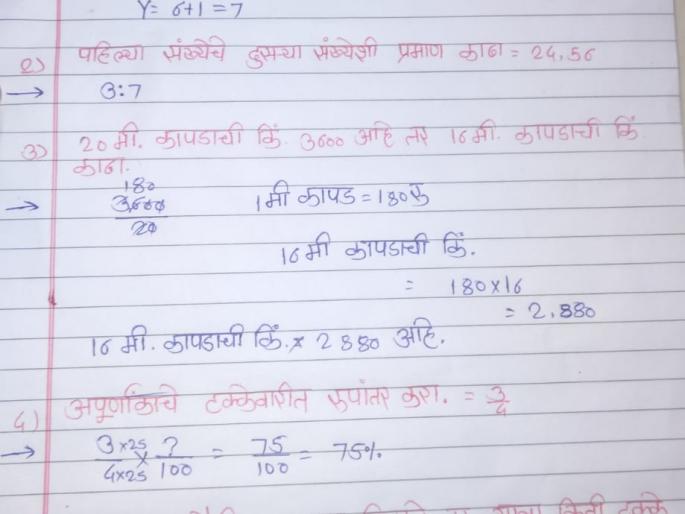 Y = 6+1 = 7
२) पहिल्या संख्येचे दुसऱ्या संख्येशी प्रमाण काढा = 24, 56
→ 3:7
३) 20 मी. कापडाची किं. 3600 आहे तर 16 मी. कापडाची किं.
काढा.
180
→ 3600 1 मी कापड = 180 रु
20
16 मी कापडाची किं.
= 180 x 16
= 2,880
16 मी. कापडाची किं. x 2880 आहे.
4) अपूर्णांकाचे टक्केवारीत रुपांतर करा. = 3/4
→ 3 x 25 / 4 x 25 x ? / 100 = 75/100 = 75%